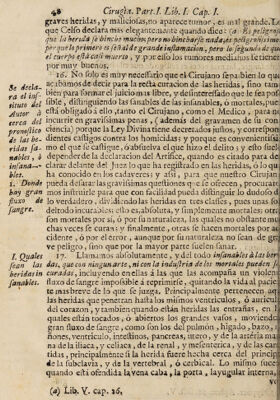 48 Cirugia. Part. I. Lib. I. Cap. I.
graves heridas, y maliciosas, no aparece tumor, es mal grande. Lo
que Celso declara mas elegantemente quando dice: (a) Es peligroso
que la herida se hinche mucho; pero no hincharse nada, es peligrosissimo
porque lo primero es señal de grande inflamacion, pero lo segundo de que
el cuerpo està casi muerto, y por ello los tumores medianos se tienen
por muy buenos.
16. No solo es muy necessario que el Cirujano sepa bien lo que
acabamos de decir para la recta curacion de las heridas, sino tam-
bien para formar el juicio mas libre, y desinteressado que le sea pos-
sible, distinguiendo las sanables de las insanables, ò mortales, pues
està obligado à ello, tanto el Cirujano, como el Medico, para no
incurrir en gravissimas penas, (además del gravamen de su con-
ciencia) porque la Ley Divina tiene decretados justos, y correspon-
dientes castigos contra los homicidas, y porque es convenientissi-
mo el que se castigue, ò absuelva el que hizo el delito, y esto suele
depender de la declaracion del Artifice, quando es citado para de-
clarar delante del Juez lo que ha registrado en las heridas, ò lo que
ha conocido en los cadaveres; y assi, para que nuestro Cirujano
pueda desatar las gravissimas questiones que se ofrecen, procurarè-
mos instruirle para que con facilidad pueda distinguir lo dudoso de
lo verdadero, dividiendo las heridas en tres classes, pues unas son
del todo incurables; esto es, absoluta, y simplemente mortales; otras
son mortales por sì, ò por su naturaleza, las quales no obstante mu-
chas veces se curan; y finalmente, otras se hacen mortales por ac-
cidente, ò por el error, aunque por su naturaleza no sean de gra-
ve peligro, sino que por la mayor parte suelen sanar.
Se decla-
ra el ins-
tituto del
Autor à
cerca del
pronostico
de las he-
ridas sa-
nables, ò
insana-
bles.
1. Donde
hay gran
fluxo de
sangre.
I. Quales
sean las
heridas in-
sanables.
17. Llamamos absolutamente, y del todo insanables à las heri-
das, que con ningun arte, ni con la industria de los mortales pueden ser
curadas, incluyendo en ellas à las que las acompaña un violento
fluxo de sangre impossible à reprimirle, quitando la vida al pacien-
te mas breve de lo que se juzga. Principalmente pertenecen aqui
las heridas que penetran hasta los mismos ventriculos, ò auriculas
del corazon, y tambien quando estàn heridas las entrañas, en las
quales estàn tocados, ò abiertos los grandes vasos, moviendo
gran fluxo de sangre, como son los del pulmon, higado, bazo, ri-
ñones, ventriculo, intestinos, pancreas, utero, y de la arteria mag-
na de la iliaca, y celiaca, de la renal, y mesenterica, y de las caro-
tidas, principalmente si la herida fuere hecha cerca del principio
de la subclavia, y de la vertebral, ò cerbical. Lo mismo sucede
quando està ofendida la vena caba, la porta, la yugular interna,
(a) Lib. V. cap. 26,